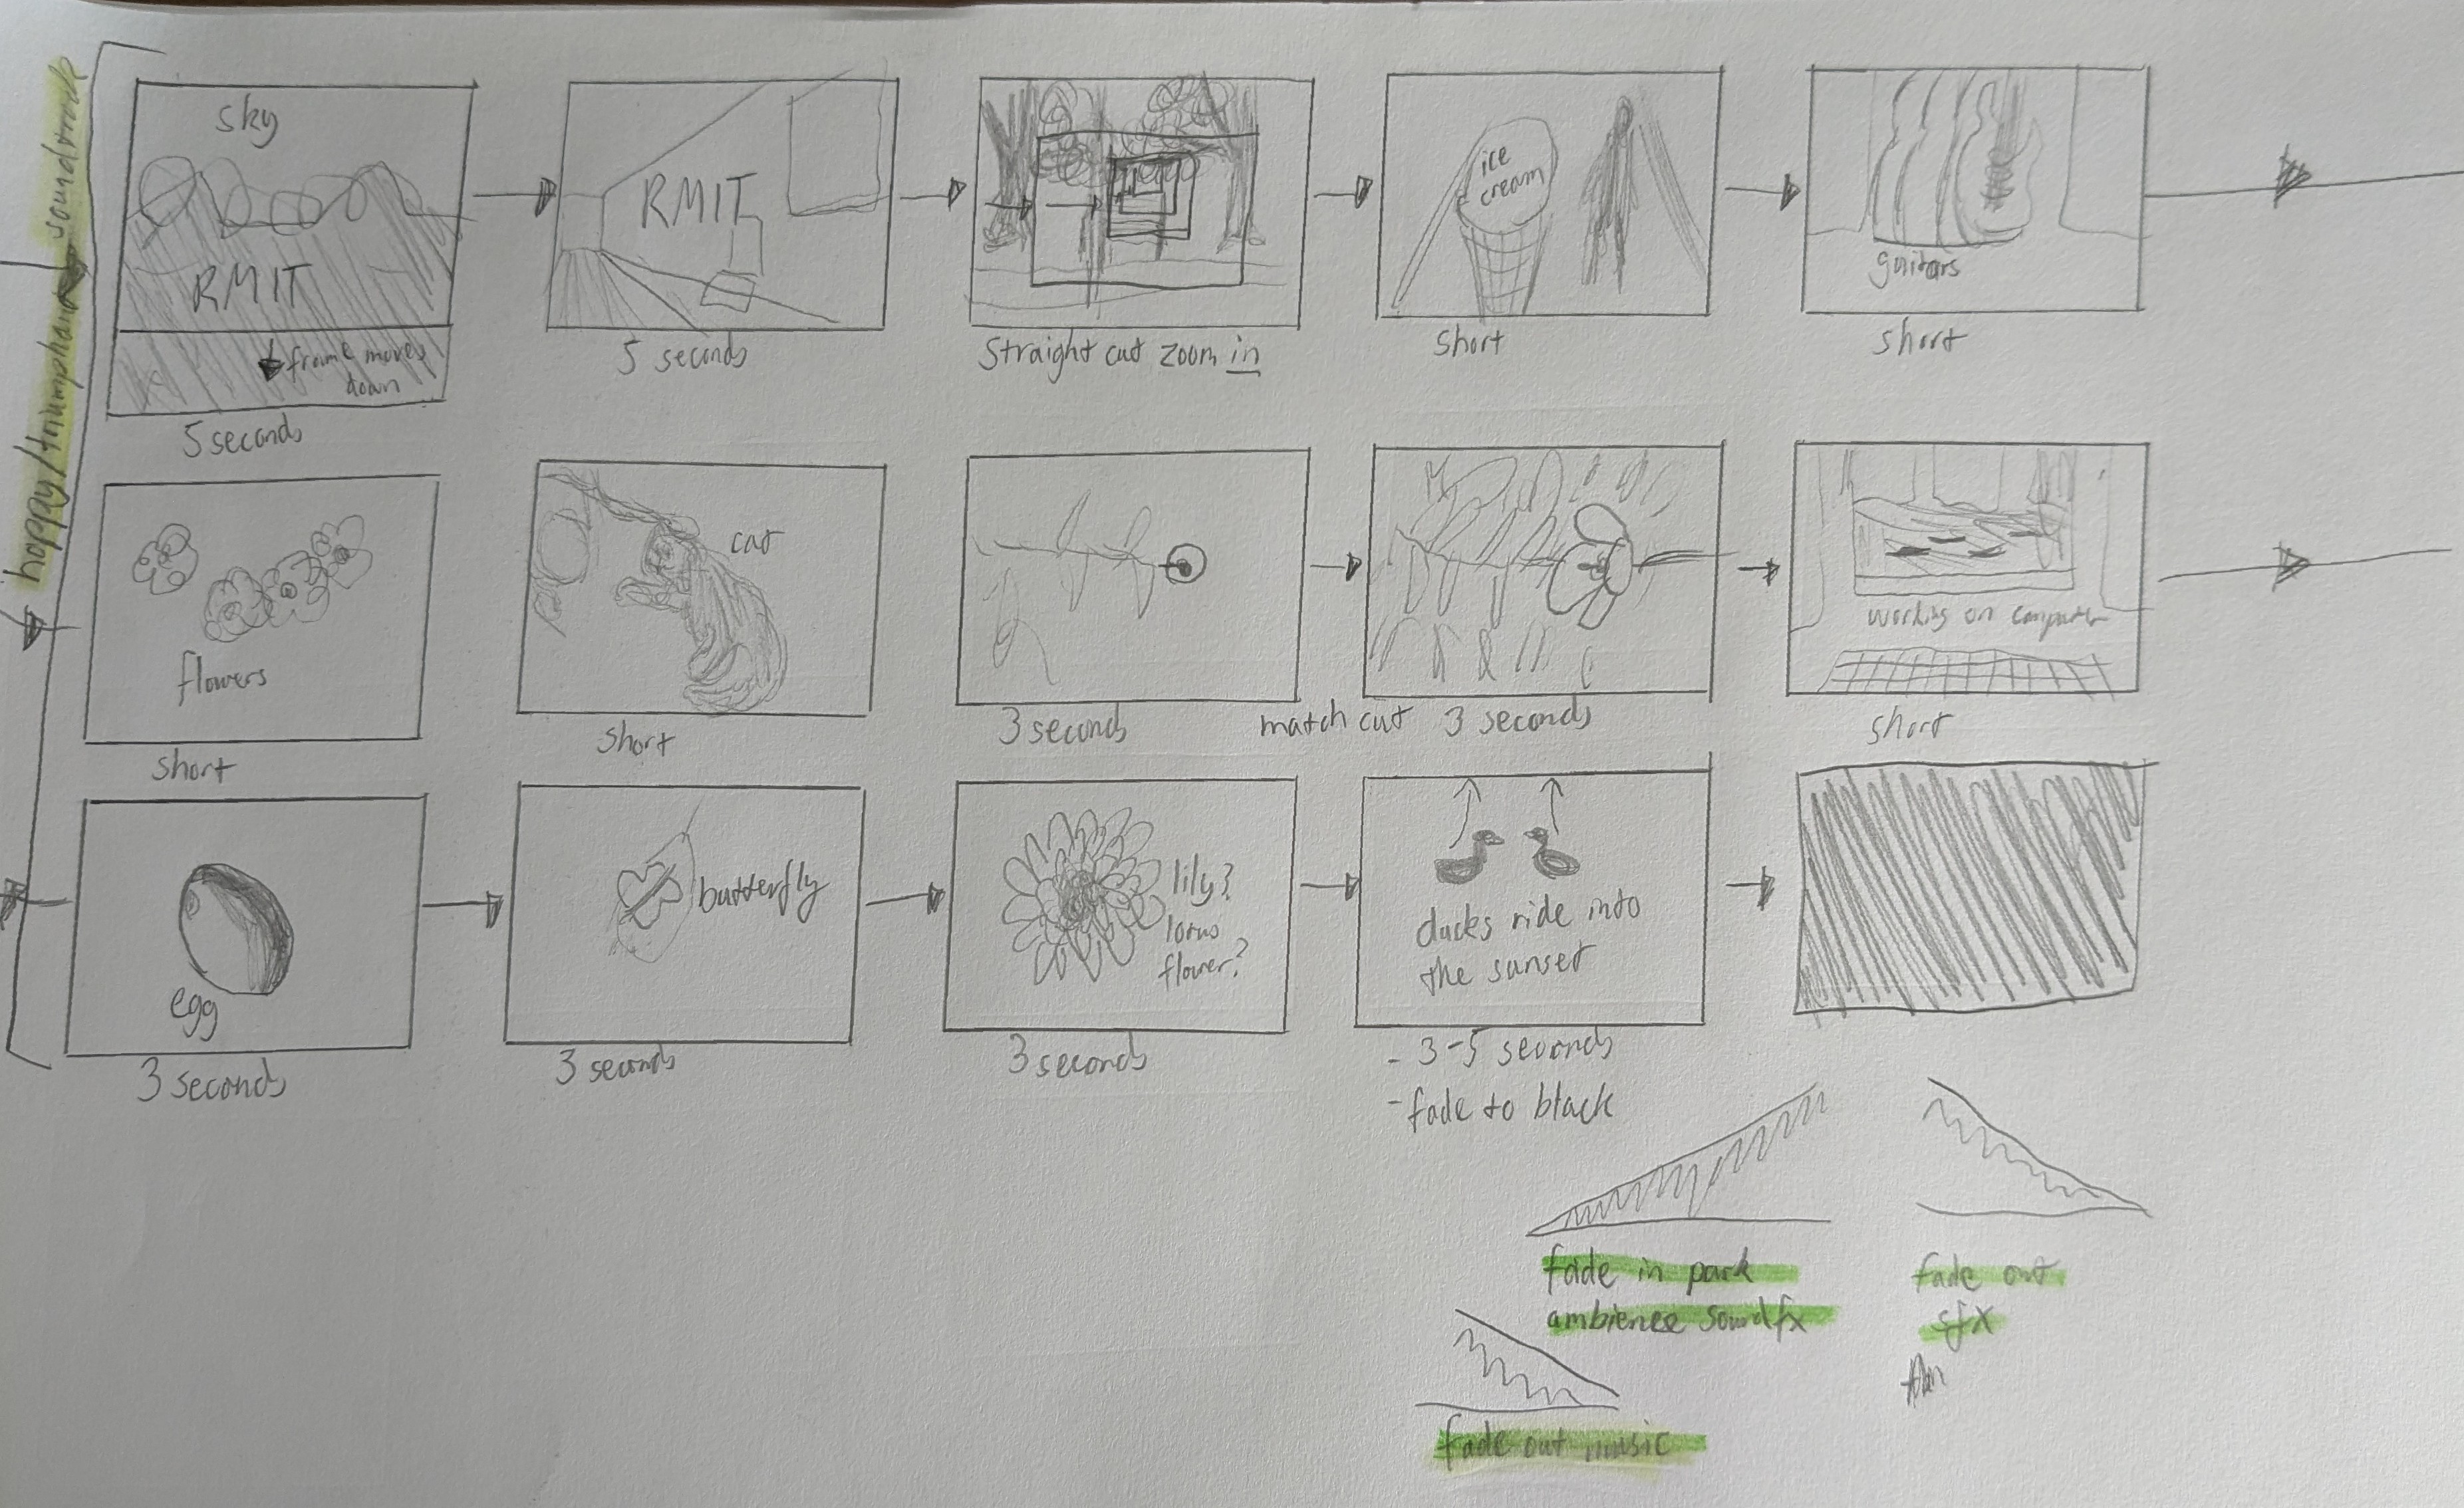 happy/triumphant soundtrack
sky
RMIT
frame moves
down
5 seconds
RMIT
5 seconds
straight cut zoom in
ice
cream
short
guitars
short
flowers
short
cat
short
3 seconds
match cut
3 seconds
working on computer
short
egg
3 seconds
butterfly
3 seconds
lily?
lotus
flower?
3 seconds
ducks ride into
the sunset
- 3-5 seconds
- fade to black
fade in park
ambience soundfx
fade out
sfx
fade out music